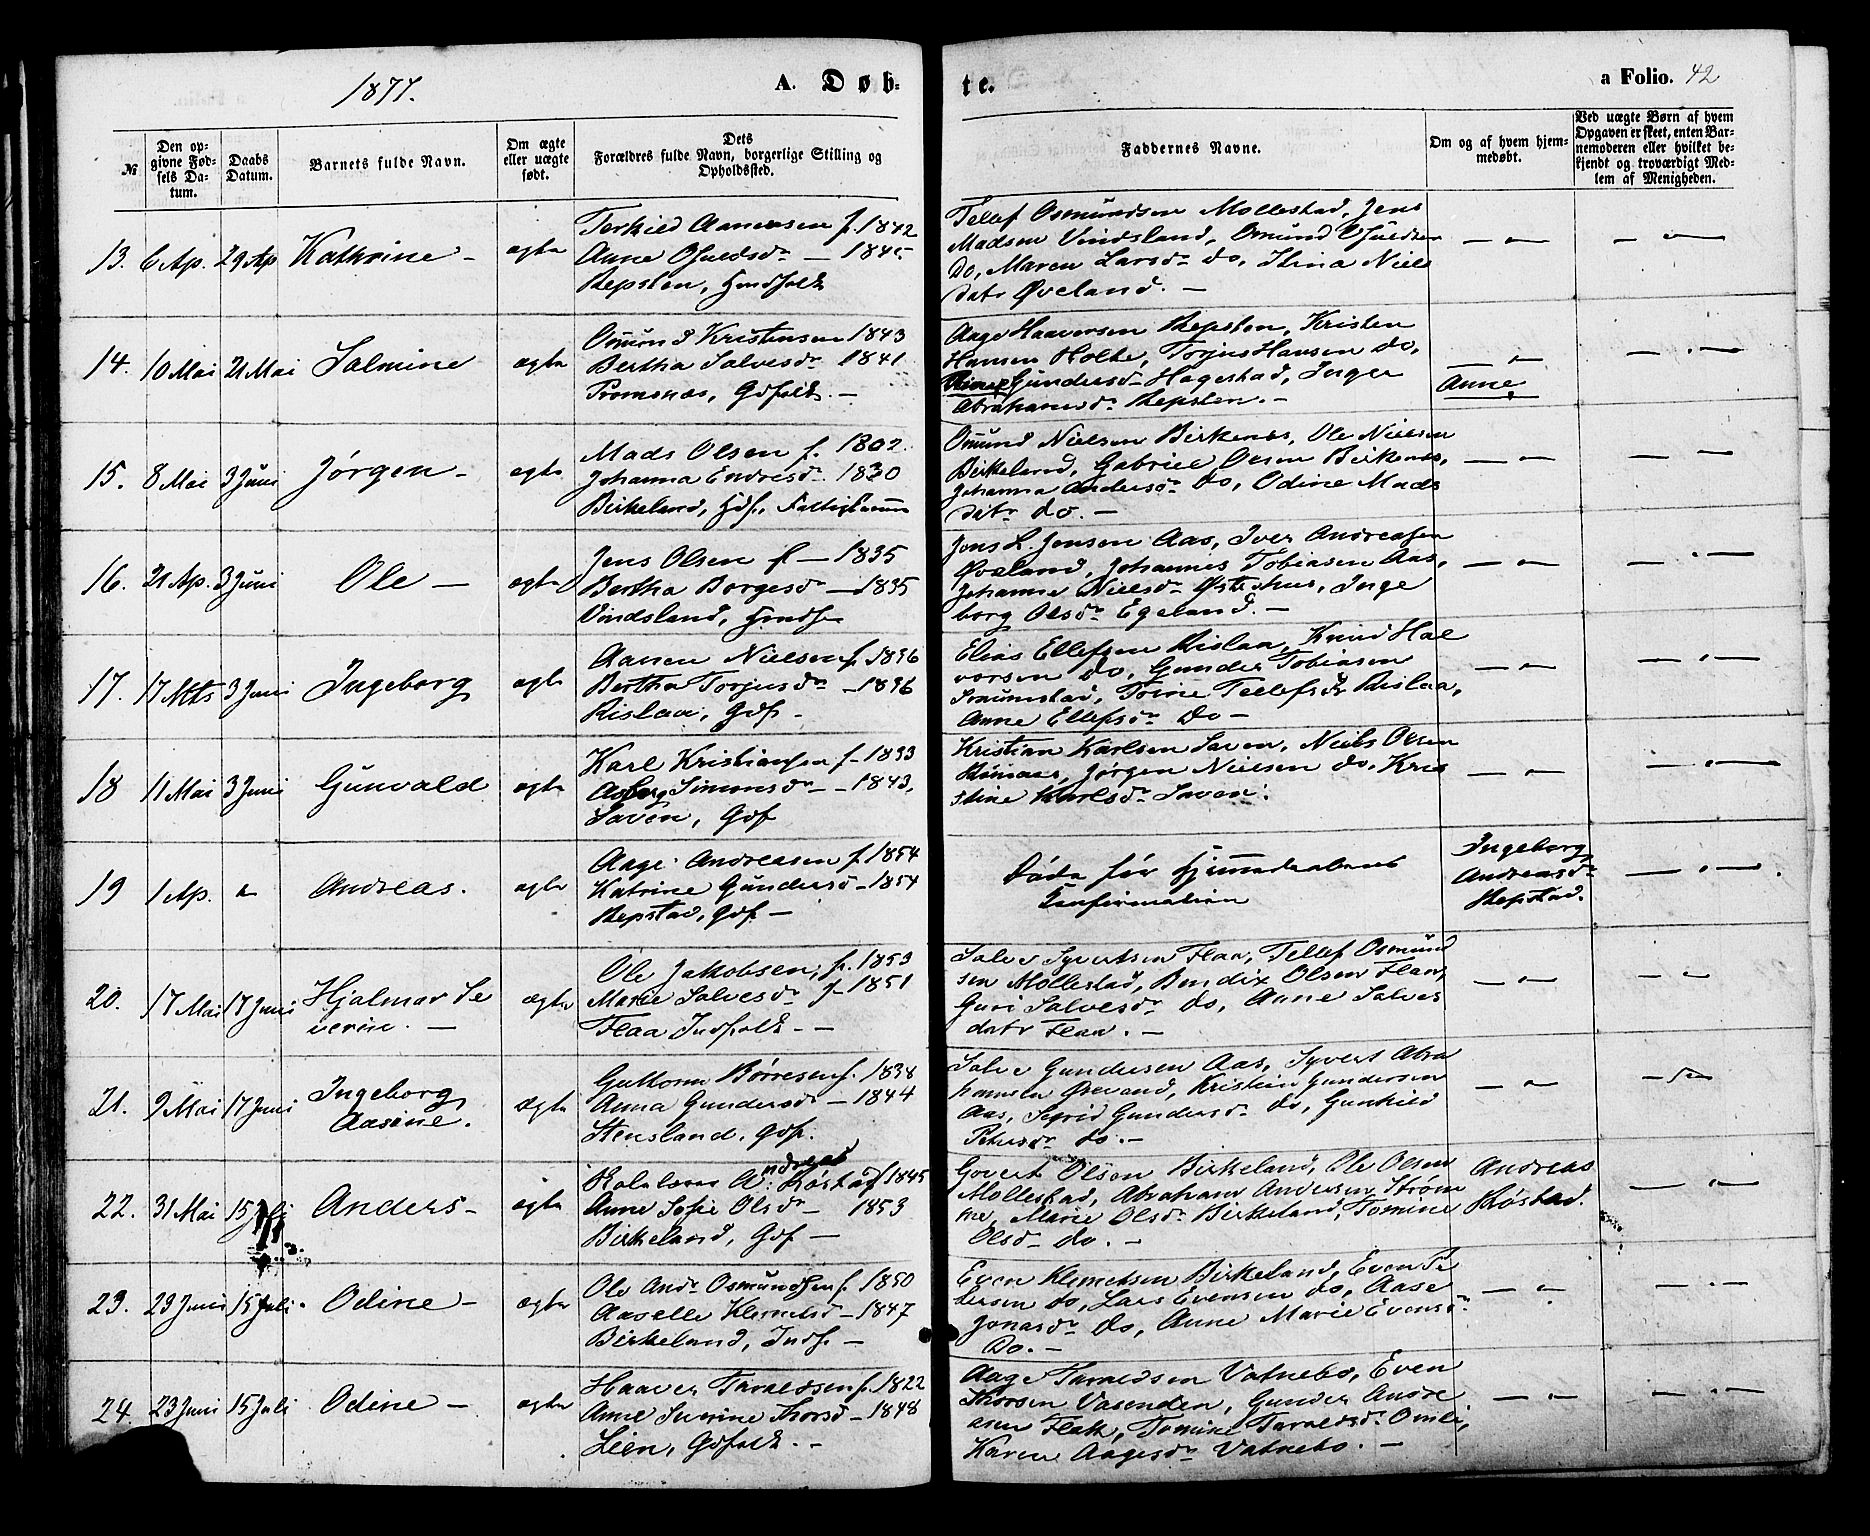 1877.
A. Døb-
te.
a Folio. 42
№
Den op-
givne Fød-
sels Da-
tum.
Daabs
Datum.
Barnets fulde Navn.
Om ægte
eller uægte
født.
Dets
Forældres fulde Navn, borgerlige Stilling og
Opholdssted.
Faddernes Navne.
Om og af hvem hjem-
medøbt.
Ved uægte Børn af hvem
Opgaven er skeet, enten Bar-
nemoderen eller hvilket be-
kjendt og troværdigt Med-
lem af Menigheden.
13. 6 Ap. 29 Ap Kathrine - ægte
Terkild Aanensen f. 1842
Anne Osuldsdr — 184
Repsten,
Tellef Osmundsen Mollestad, Jens
Madsen Vindsland, Omund Osuldsen
Do, Maren Larsdr do, Stina Niels
datr Øveland. —
14. 10 Mai 21 Mai Salmine ægte
Omund Kristensen 1843
Bertha Salvesdr 1841
Gdfolk. —
Aage Haaversen Repsten, Kristen
Hansen Holte, Torjus Hansen do,
Gundersdr Hagestad, Inger
Abrahamsdr Repsten. —
Anne,
15. 8 Mai 3 Juni Jørgen - ægte
Mads Olsen f. 1802.
Johanna Endresdr 1830
Birkeland,
Omund Nielsen Birkenes, Ole Nielsen
Birkeland, Gabriel Olsen Birkenes,
Johanna Andersdr Do, Odine Mads
datr do. —
16. 21 Ap. 3 Juni Ole — ægte
Jens Olsen f — 1835
Bertha Borgesdr — 1835
Vindsland,
Jens L. Jensen Aas, Iver Andreasen
Øveland, Johannes Tobiasen Aas,
Johanne Nielsdr Inge
borg Olsdr Egeland. —
17. 17 Mts 3 Juni Ingeborg ægte
Aanen Nielsen f. 1836
Bertha Torjusdr — 1836
Rislaa, Gdf -
Elias Ellefsen Rislaa, Knud Hal
vorsen do, Gunder Tobiasen
Trine Tellefsdr Rislaa,
Anne Ellefsdr Do —
18 11 Mai 3 Juni Gunvald ægte
Karl Kristiansen f- 1833
Asborg Simonsdr — 1843,
Saven, Gdf
Kristian Karlsen Saven, Niels Olsen
Jørgen Nielsen do, Kris
stine Karlsdr Saven.
19 1 Ap. Andreas. ægte
Aage Andreasen f. 1854
Katrine Gundersd — 1854
Repstad, Gdf —
Døde før Hjemmedaabens
Konfirmation
Ingeborg
Andreasdr
Repstad.
20. 17 Mai 17 Juni Hjalmar Se
verin. — ægte
Ole Jakobsen, f. 1853
Marie Salvesdr f- 1851
Flaa Indfolk. —
Salve Syvertsen Flaa, Tellef Osmund
sen Mollestad, Bendix Olsen Flaa,
Guri Salvesdr do, Anne Salves
datr Flaa. —
21. 9 Mai 17 Juni Ingeborg
Aasine. ægte
Guttorm Børresen f. 1838
Anna Gundersdr — 1844
Stensland, Gdf.
Salve Gundersen Aas, Syvert Abra
hamsen Kristen Gundersen
Aas, Sigrid Gundersdr do, Gunhild
Petersdr do. —
22. 31 Mai 15 Juli Anders - ægte
Andreas Røstad f 1845
Anne Sofie Olsdr — 1853
Birkeland, Gdf —
Govert Olsen Birkeland, Ole Olsen
Mollestad, Abraham Andersen Strøm
me, Marie Olsdr Birkeland, Tomine
Olsdr do. —
Andreas
Røstad.
23. 23 Juni 15 Juli. Odine - ægte
Ole Andr Osmundsen f. 1850
Aaselle Klemetsd — 1847
Birkeland, Indf. —
Even Klemetsen Birkeland, Even Pe
tersen do, Lars Evensen do, Aase
Jonasdr do, Anne Marie Evensdr
Do. —
24. 23 Juni 15 Juli Odine - ægte
Haaver Taraldsen f. 1822
Anne Severine Thorsd — 1848
Leen, Gdfolk. —
Aage Taraldsen Vatnebo, Even
Thorsen Vasenden, Gunder Andre
asen Flak, Tomine Taraldsdr Omli,
Karen Aagesdr Vatnebo. —